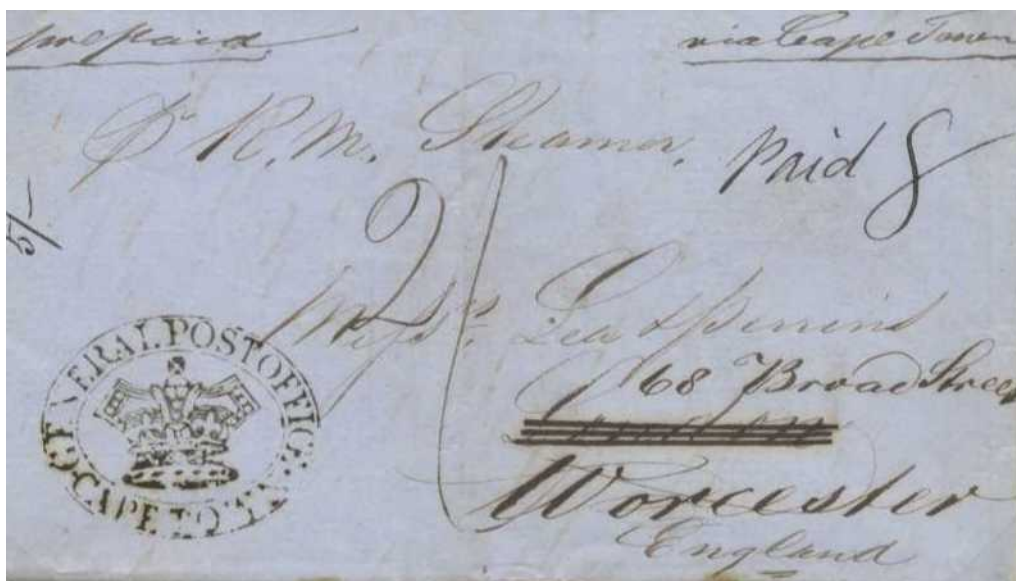 prepaid via Cape Town
Pr R. M. Steamer. Paid 8
2/
5/-
Messrs. Lea & Perrins
68 Broad Street
London
Worcester
England
GENERAL POST OFFICE
CAPE TOWN